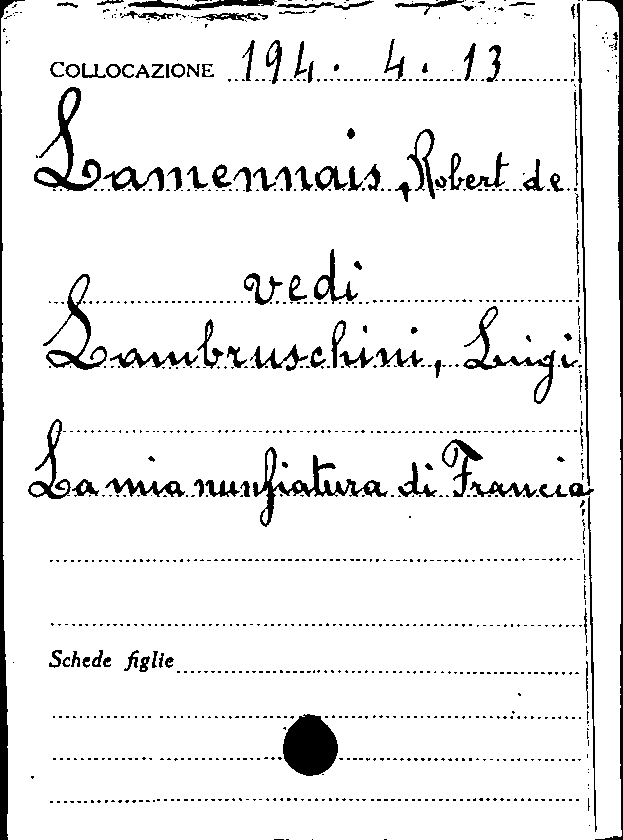 COLLOCAZIONE 194. 4. 13
Lamennais, Robert de
vedi
Lambruschini, Luigi
La mia nunziatura di Francia
Schede figlie